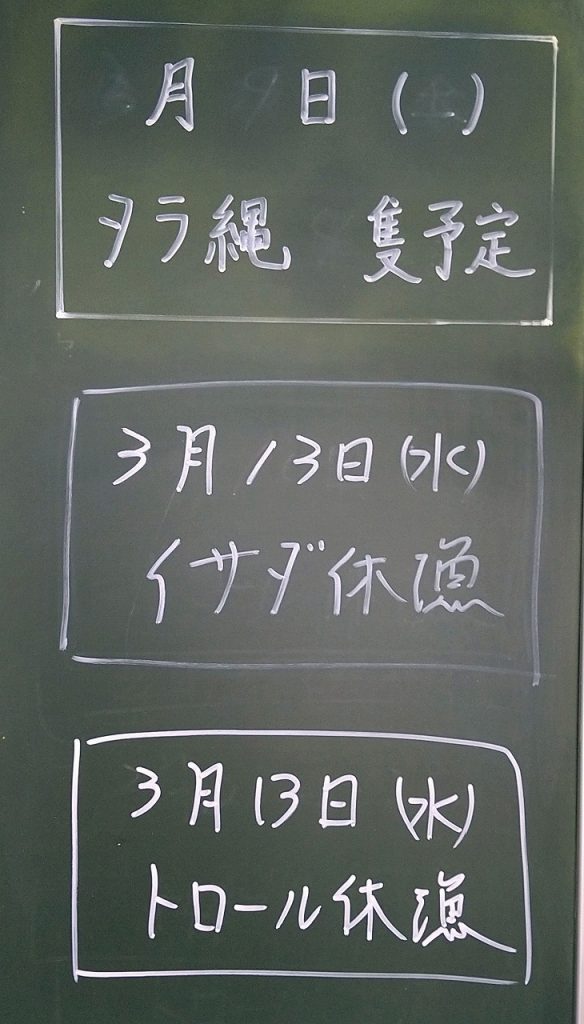 月 日 ( )
タラ縄 隻予定
3月13日(水)
イサダ休漁
3月13日(水)
トロール休漁